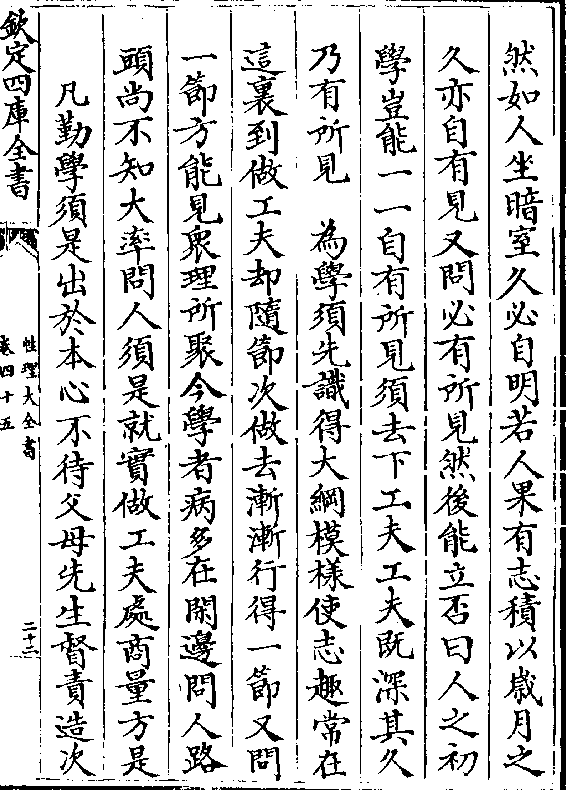 然如人坐暗室久必自明若人果有志積以嵗月之
久亦自有見又問必有所見然後能立否曰人之初
學豈能一一自有所見須去下工夫工夫既深其久
乃有所見　為學須先識得大綱模様使志趣常在
這裏到做工夫却隨節次做去漸漸行得一節又問
一節方能見衆理所聚今學者病多在閑邊問人路
頭尚不知大率問人須是就實做工夫處商量方是
凡勤學須是出於本心不待父母先生督責造次
欽定四庫全書
性理大全書
卷四十五
二十二